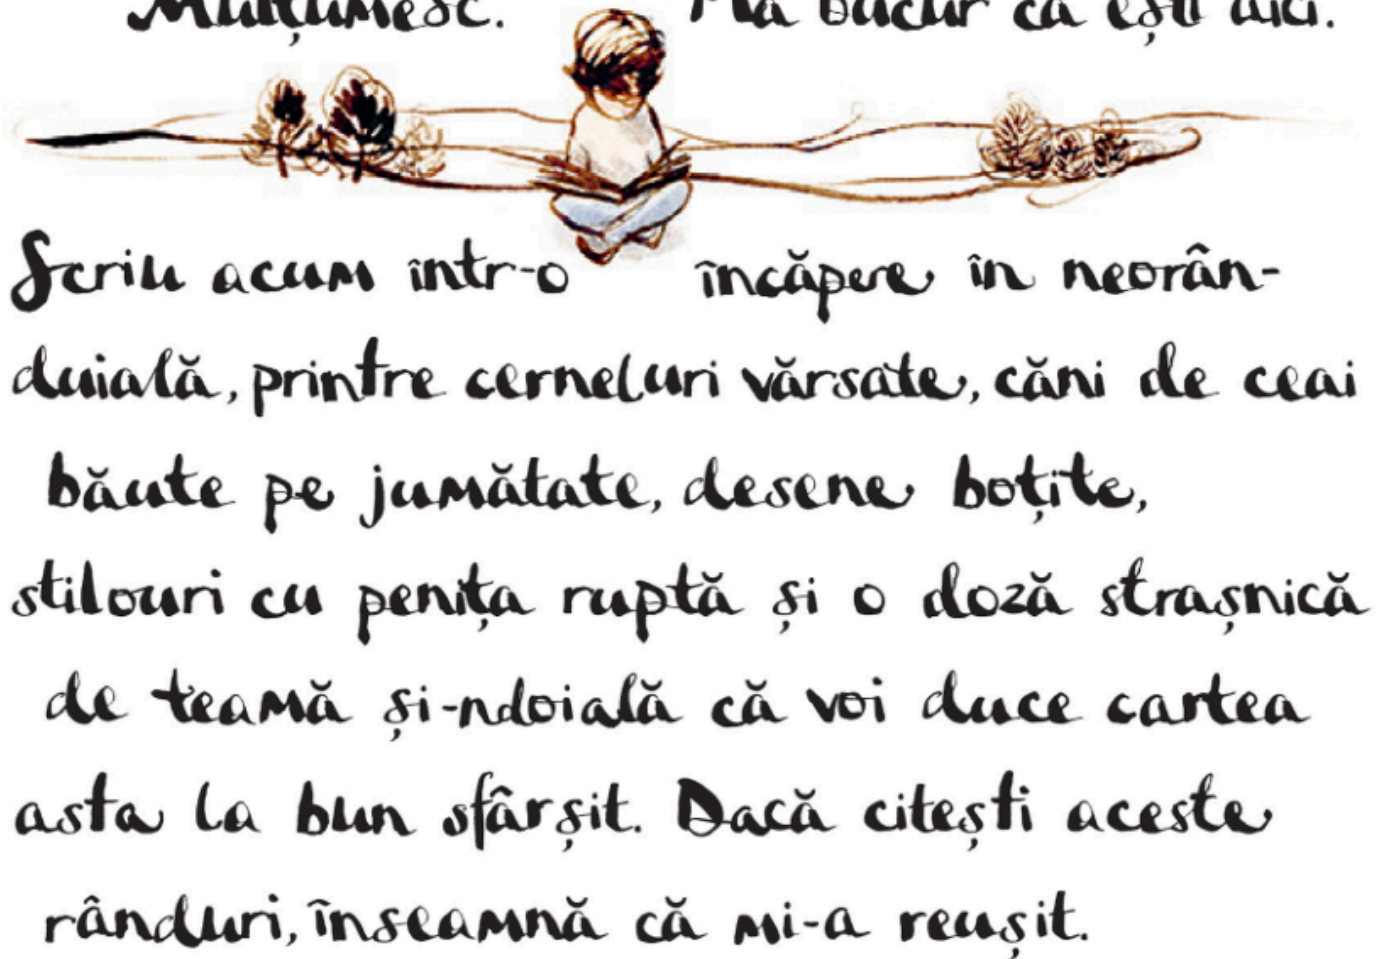 Mulțumesc. Mă bucur că ești aici.
Scriu acum într-o încăpere în neorân-
duială, printre cerneluri vărsate, căni de ceai
băute pe jumătate, desene boțite,
stilouri cu penița ruptă și o doză strașnică
de teamă și-ndoială că voi duce cartea
asta la bun sfârșit. Dacă citești aceste
rânduri, înseamnă că mi-a reușit.